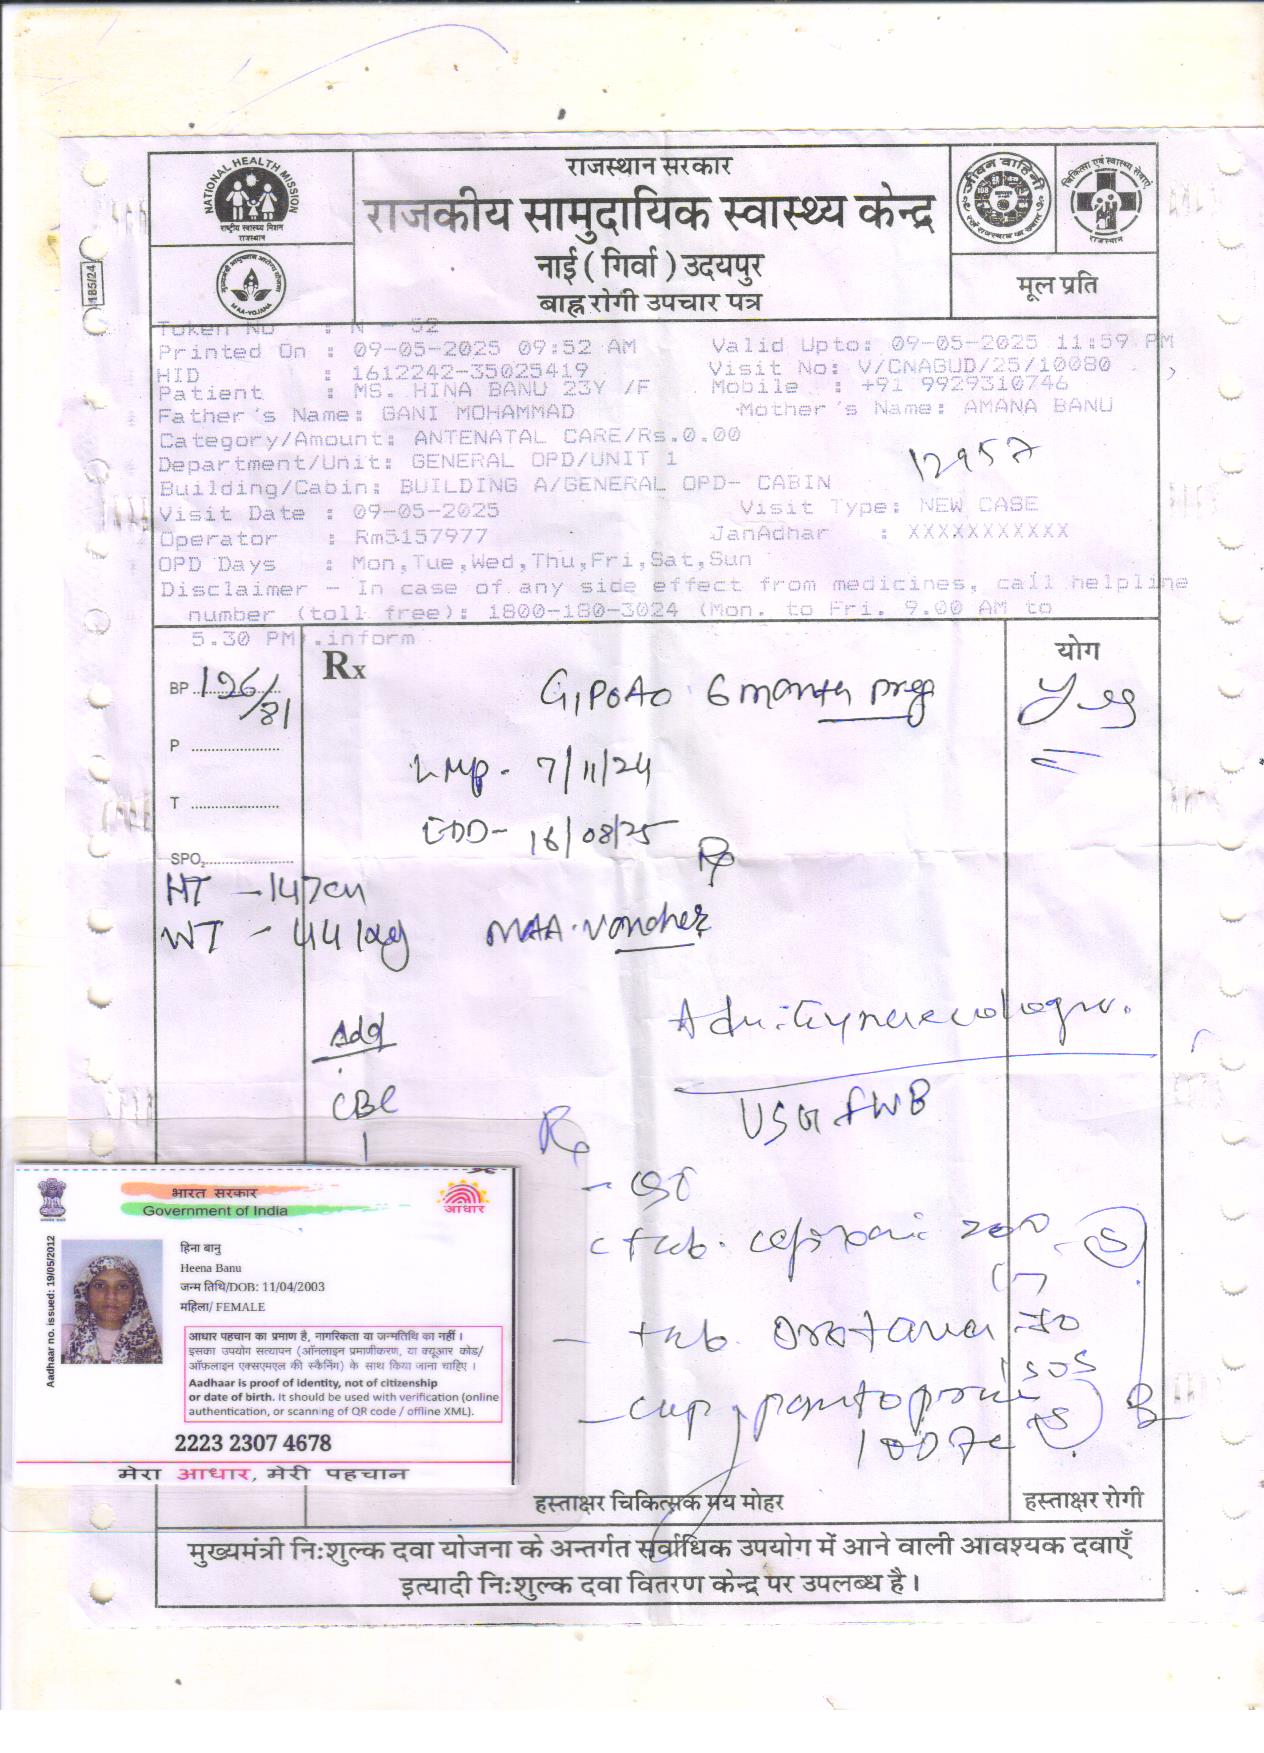 राजस्थान सरकार
राजकीय सामुदायिक स्वास्थ्य केन्द्र
नाई ( गिर्वा ) उदयपुर
बाह्न रोगी उपचार पत्र
मूल प्रति
NATIONAL HEALTH MISSION
राष्ट्रीय स्वास्थ्य मिशन
राजस्थान
MAA-YOJANA
जीवन वाहिनी
चिकित्सा एवं स्वास्थ्य सेवाएं
राजस्थान
185/24
Token No : N - 52
Printed On : 09-05-2025 09:52 AM Valid Upto: 09-05-2025 11:59 PM
HID : 1612242-35025419 Visit No: V/CNAGUD/25/10080
Patient : MS. HINA BANU 23Y /F Mobile : +91 9929310746
Father's Name: GANI MOHAMMAD Mother's Name: AMANA BANU
Category/Amount: ANTENATAL CARE/Rs.0.00
Department/Unit: GENERAL OPD/UNIT 1
12957
Building/Cabin: BUILDING A/GENERAL OPD- CABIN
Visit Date : 09-05-2025 Visit Type: NEW CASE
Operator : Rm5157977 JanAdhar : XXXXXXXXXXX
OPD Days : Mon,Tue,Wed,Thu,Fri,Sat,Sun
Disclaimer - In case of any side effect from medicines, call helpline
number (toll free): 1800-180-3024 (Mon. to Fri. 9.00 AM to
5.30 PM).inform
Rx
योग
BP 126/81
G1P0A0 6 month preg
P
LMP - 7/11/24
T
EDD - 16/08/25
SPO2
Rx
HT - 147cm
WT - 44 kg
MAA. Voucher
Adv
CBC
USG FWB
Rx
tab.
200
tab.
cap
हस्ताक्षर चिकित्सक मय मोहर
हस्ताक्षर रोगी
भारत सरकार
Government of India
आधार
Aadhaar no. issued: 19/05/2012
हिना बानु
Heena Banu
जन्म तिथि/DOB: 11/04/2003
महिला/ FEMALE
आधार पहचान का प्रमाण है, नागरिकता या जन्मतिथि का नहीं ।
इसका उपयोग सत्यापन (ऑनलाइन प्रमाणीकरण, या क्यूआर कोड/
ऑफ़लाइन एक्सएमएल की स्कैनिंग) के साथ किया जाना चाहिए ।
Aadhaar is proof of identity, not of citizenship
or date of birth. It should be used with verification (online
authentication, or scanning of QR code / offline XML).
2223 2307 4678
मेरा आधार, मेरी पहचान
मुख्यमंत्री निःशुल्क दवा योजना के अन्तर्गत सर्वाधिक उपयोग में आने वाली आवश्यक दवाएँ
इत्यादी निःशुल्क दवा वितरण केन्द्र पर उपलब्ध है ।